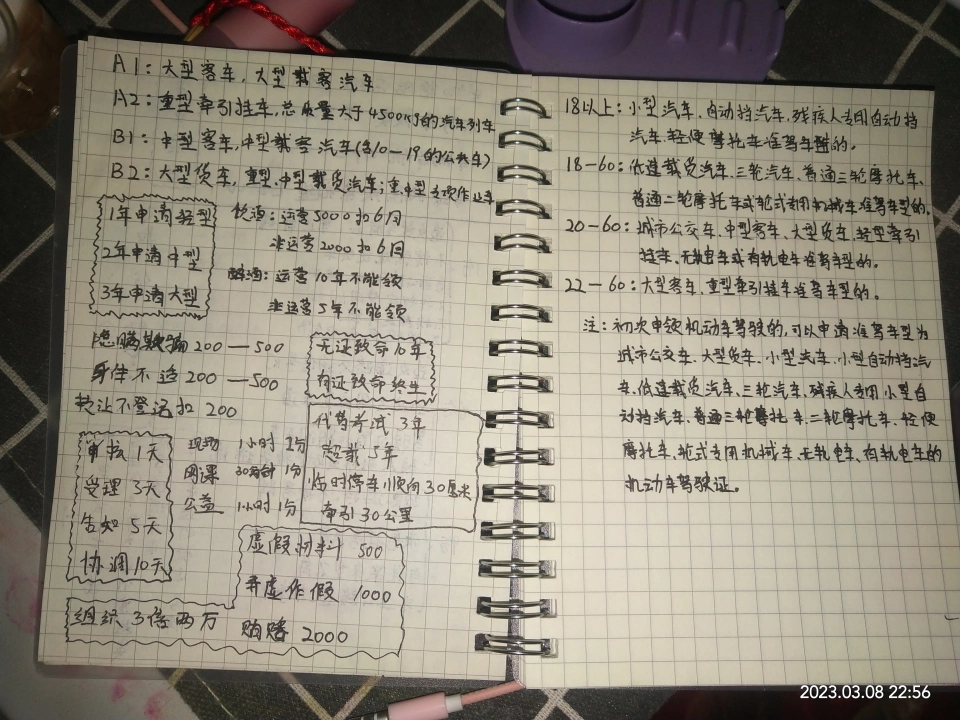 A1：大型客车，大型载客汽车
A2：重型牵引挂车，总质量大于4500kg的汽车列车
B1：中型客车，中型载客汽车(含10—19的公共车)
B2：大型货车，重型、中型载货汽车；重、中型专项作业车
1年申请轻型
2年申请中型
3年申请大型
饮酒：运营5000扣6月
非运营2000扣6月
醉酒：运营10年不能领
非运营5年不能领
隐瞒欺骗200—500
身体不适200—500
转让不登记扣200
无证致命10年
有证致命终生
代替考试3年
超载5年
临时停车顺向30厘米
牵引30公里
审核1天
受理3天
告知5天
协调10天
现场 1小时1分
网课 30分钟1分
公益 1小时1分
虚假材料 500
弄虚作假 1000
贿赂 2000
组织3倍两万
18以上：小型汽车、自动挡汽车，残疾人专用自动挡
汽车、轻便摩托车准驾车型的。
18-60：低速载货汽车、三轮汽车、普通三轮摩托车、
普通二轮摩托车或轮式专用机械车准驾车型的。
20-60：城市公交车、中型客车、大型货车、轻型牵引
挂车、无轨电车或有轨电车准驾车型的。
22-60：大型客车、重型牵引挂车准驾车型的。
注：初次申领机动车驾驶的，可以申请准驾车型为
城市公交车、大型货车、小型汽车、小型自动挡汽
车、低速载货汽车、三轮汽车、残疾人专用小型自
动挡汽车、普通三轮摩托车、二轮摩托车、轻便
摩托车、轮式专用机械车、无轨电车、有轨电车的
机动车驾驶证。
2023.03.08 22:56